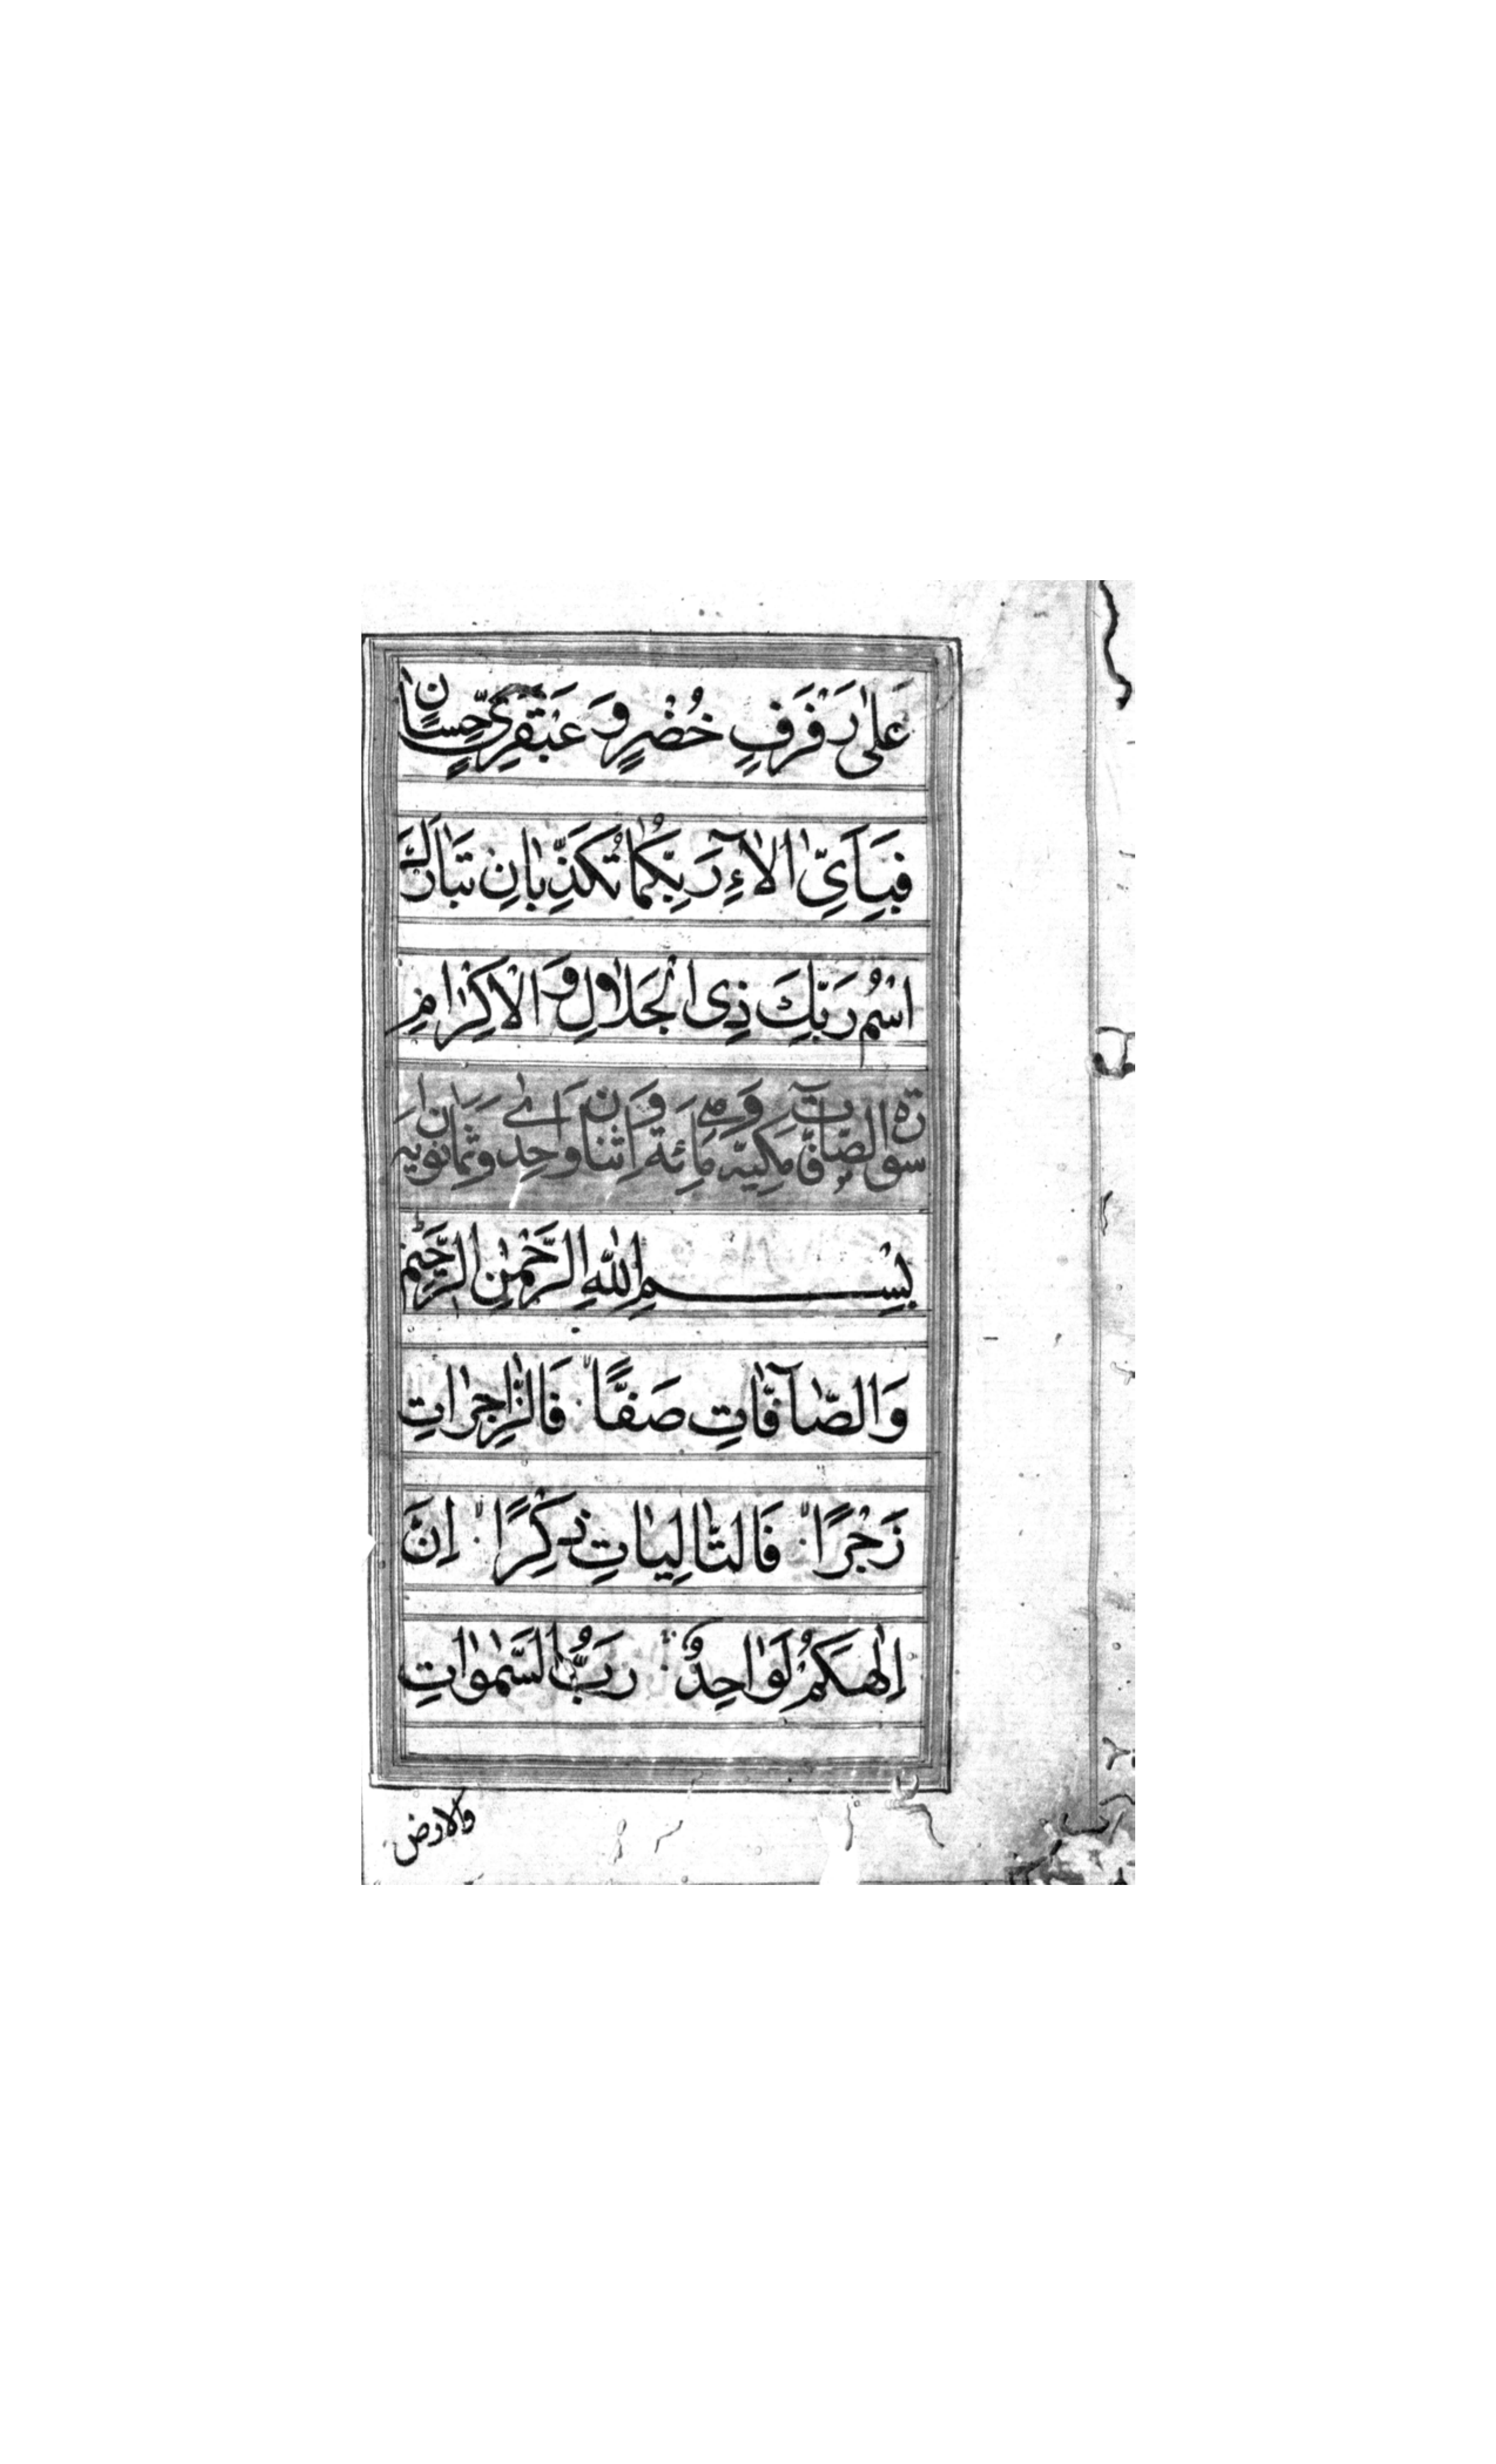 عَلٰى رَفْرَفٍ خُضْرٍ وَ عَبْقَرِيٍّ حِسَانٍ
فَبِاَيِّ اٰلَآءِ رَبِّكُمَا تُكَذِّبٰانِ تَبٰارَكَ
اسْمُ رَبِّكَ ذِى الْجَلَالِ وَ الْاِكْرٰامِ
سورة الصّافّات مكيّة وهى مائة واثنان وثمانون اية
بِسْمِ اللّٰهِ الرَّحْمٰنِ الرَّحِيْمِ
وَالصّٰآفّٰاتِ صَفًّا فَالزّٰاجِرٰاتِ
زَجْرًا فَالتّٰالِيٰاتِ ذِكْرًا اِنَّ
اِلٰهَكُمْ لَوٰاحِدٌ رَبُّ السَّمٰوٰاتِ
والارض